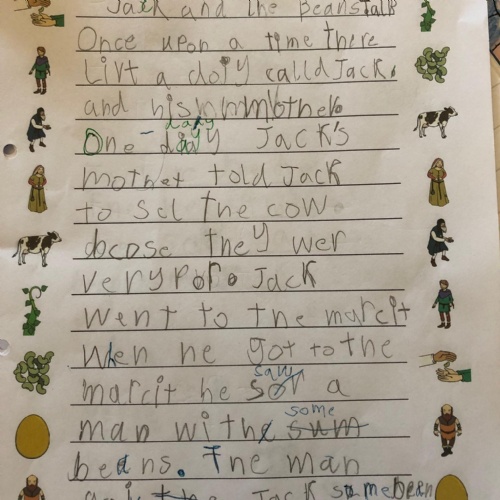 Jack and the Beanstalk
Once upon a time there
Livt a doiy calld Jack.
and his mother.
One day Jack's
mother told Jack
to sel the cow
dcose they wer
very por. Jack
went to the marcit
When he got to the
marcit he saw a
man with some
beans. The man
Jack some bean